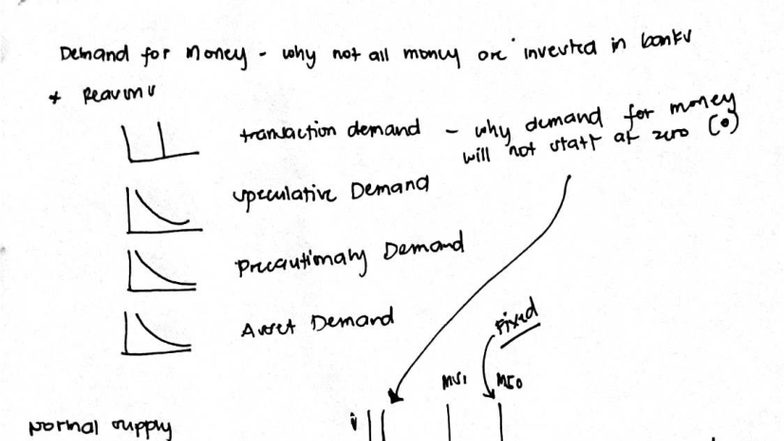 Demand for money - why not all money are invested in banks
* Reasons
transaction demand - why demand for money
will not start at zero (0)
speculative Demand
Precautionary Demand
Asset Demand
Fixed
MS1 MS0
i
Normal supply